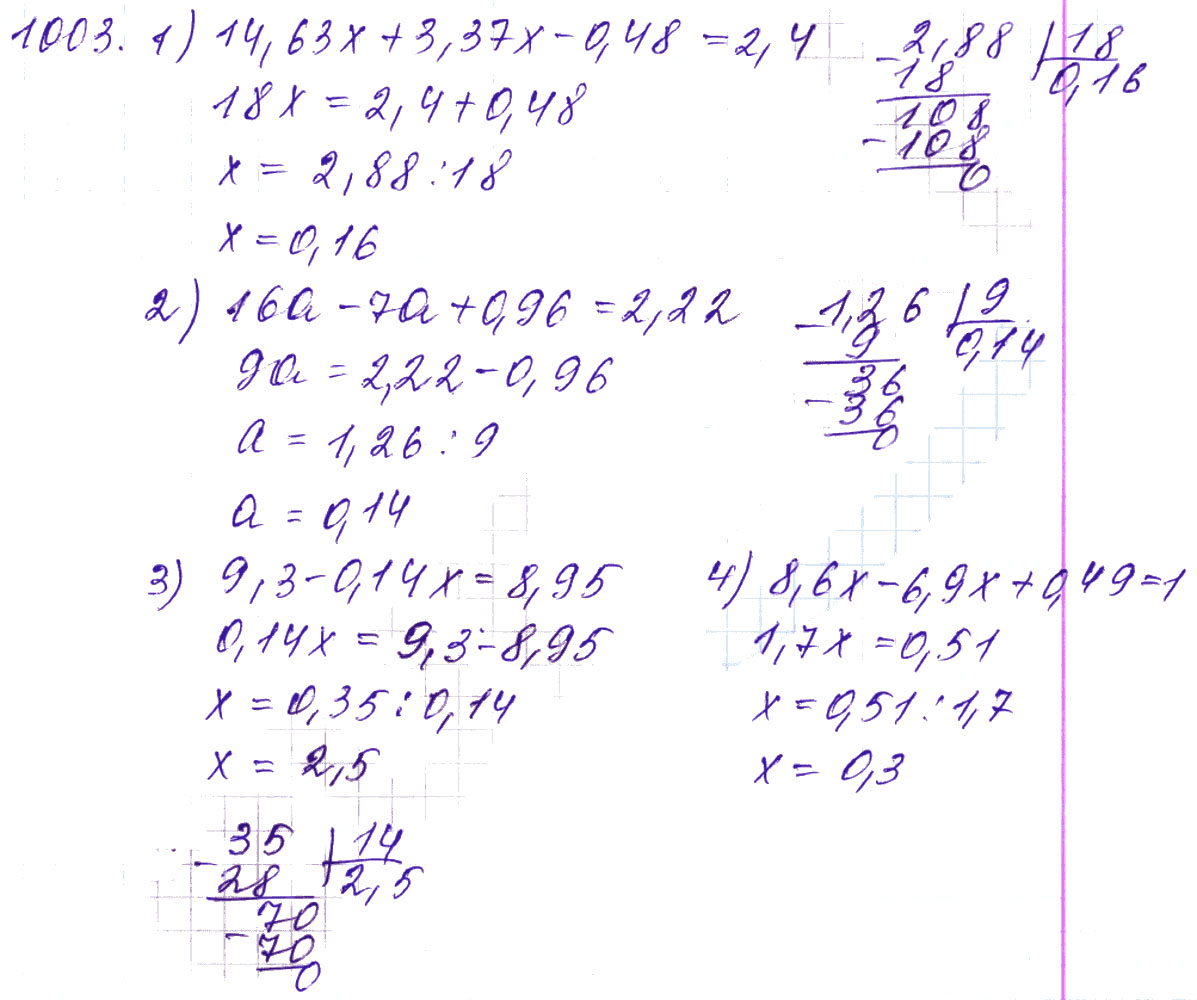 1003. 1) 14,63x + 3,37x - 0,48 = 2,4
18x = 2,4 + 0,48
x = 2,88 : 18
x = 0,16
- 2,88 | 18
18 0,16
108
- 108
0
2) 16a - 7a + 0,96 = 2,22
9a = 2,22 - 0,96
a = 1,26 : 9
a = 0,14
- 1,26 | 9
9 0,14
36
- 36
0
3) 9,3 - 0,14x = 8,95
0,14x = 9,3 - 8,95
x = 0,35 : 0,14
x = 2,5
- 35 | 14
28 2,5
70
- 70
0
4) 8,6x - 6,9x + 0,49 = 1
1,7x = 0,51
x = 0,51 : 1,7
x = 0,3